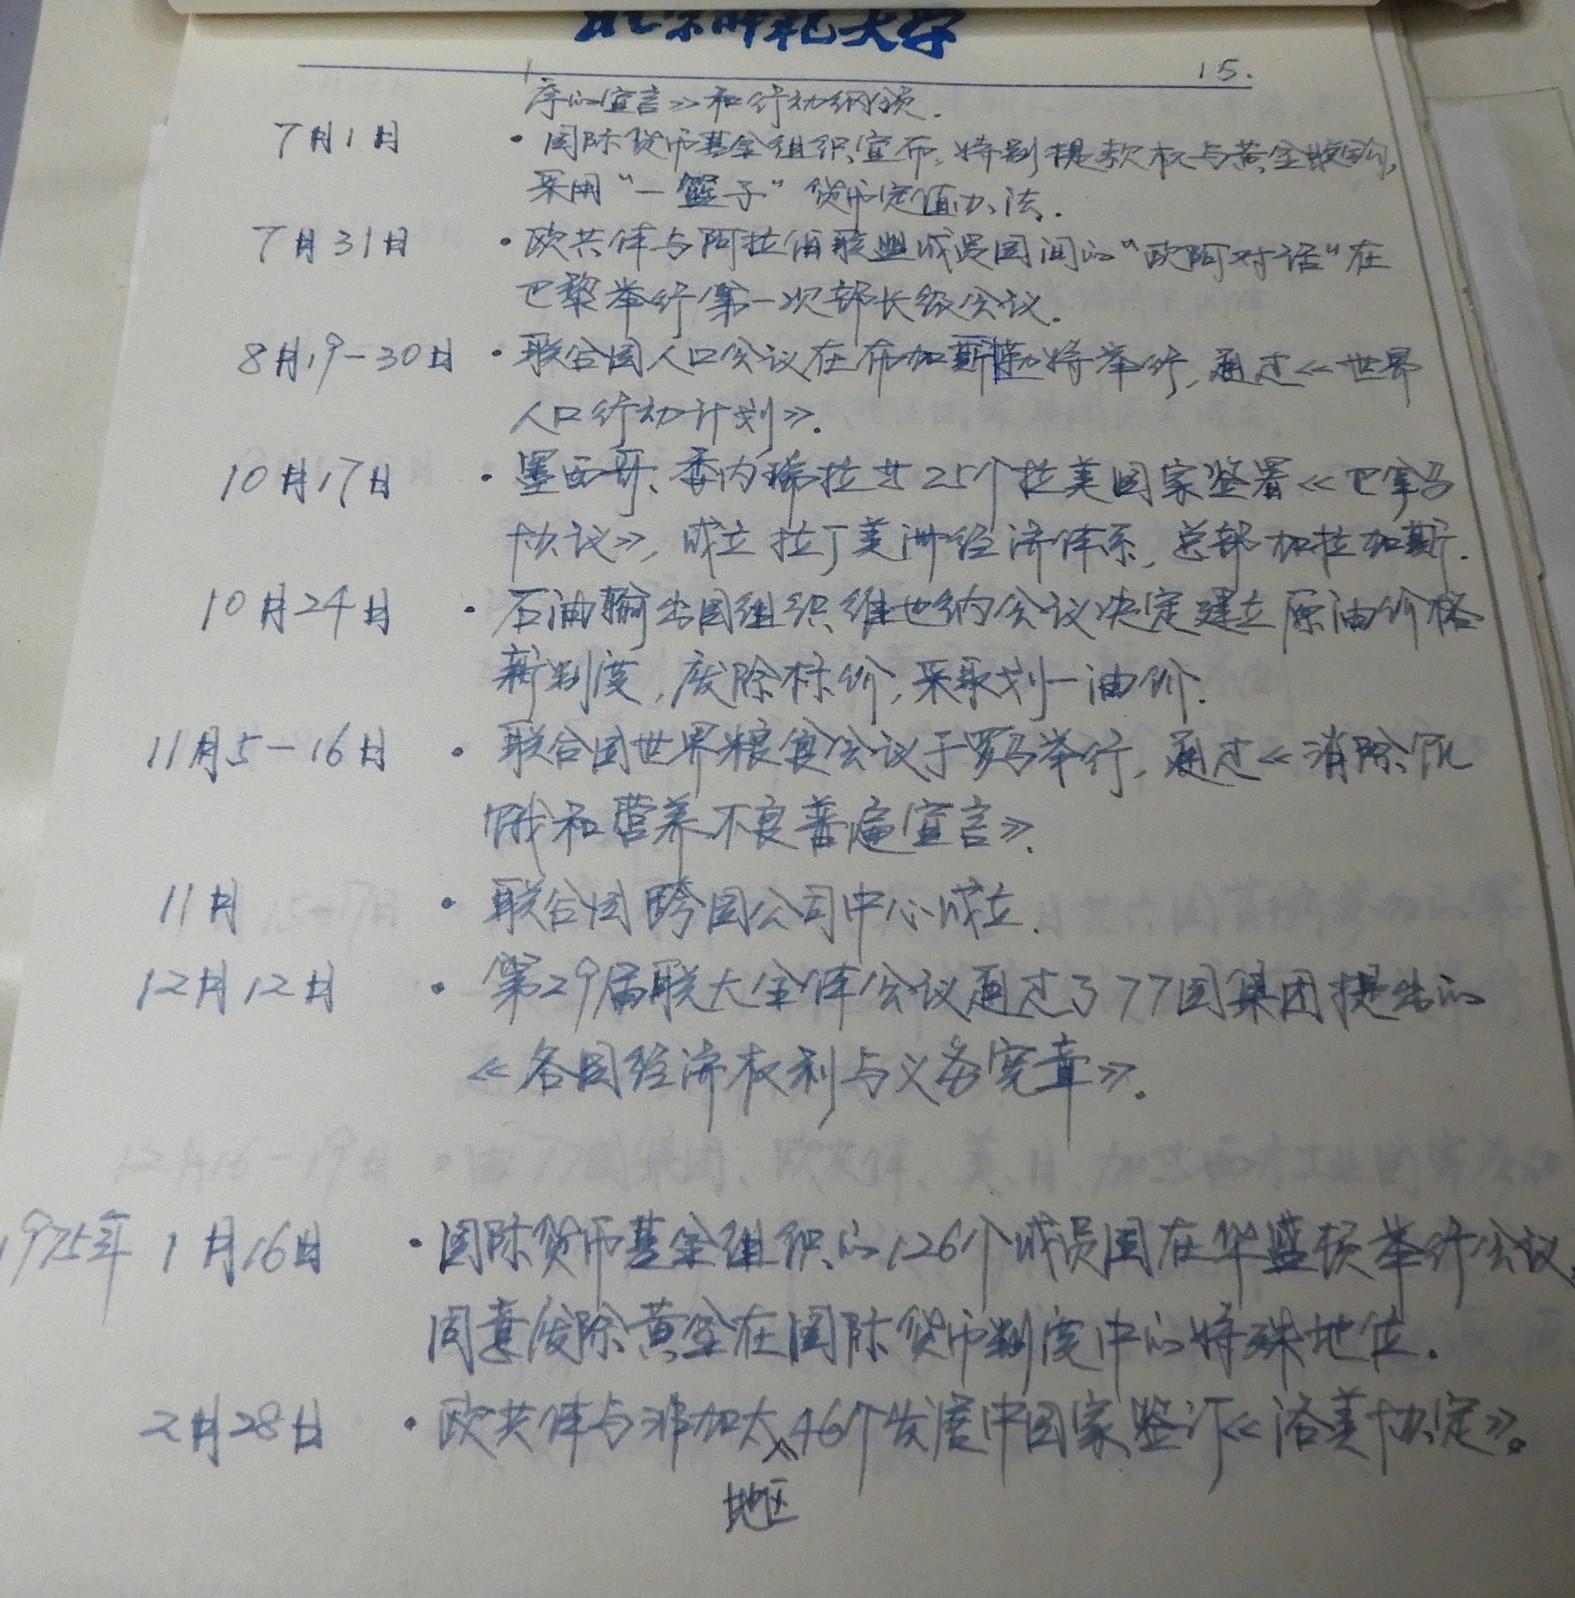 北京师范大学
15.
序的宣言》和行动纲领.
7月1日 · 国际货币基金组织宣布, 特别提款权与黄金脱钩,
采用“一篮子”货币定值办法.
7月31日 · 欧共体与阿拉伯联盟成员国间的“欧阿对话”在
巴黎举行第一次部长级会议.
8月19-30日 · 联合国人口会议在布加勒特举行, 通过《世界
人口行动计划》.
10月17日 · 墨西哥、委内瑞拉共25个拉美国家签署《巴拿马
协议》, 成立拉丁美洲经济体系, 总部加拉加斯.
10月24日 · 石油输出国组织维也纳会议决定建立原油价格
新制度, 废除标价, 采取划一油价.
11月5-16日 · 联合国世界粮食会议于罗马举行, 通过《消除饥
饿和营养不良普遍宣言》.
11月 · 联合国跨国公司中心成立.
12月12日 · 第29届联大全体会议通过了77国集团提出的
《各国经济权利与义务宪章》.
1975年 1月16日 · 国际货币基金组织的126个成员国在华盛顿举行会议,
同意废除黄金在国际货币制度中的特殊地位.
2月28日 · 欧共体与非加太46个发展中国家签订《洛美协定》。
地区